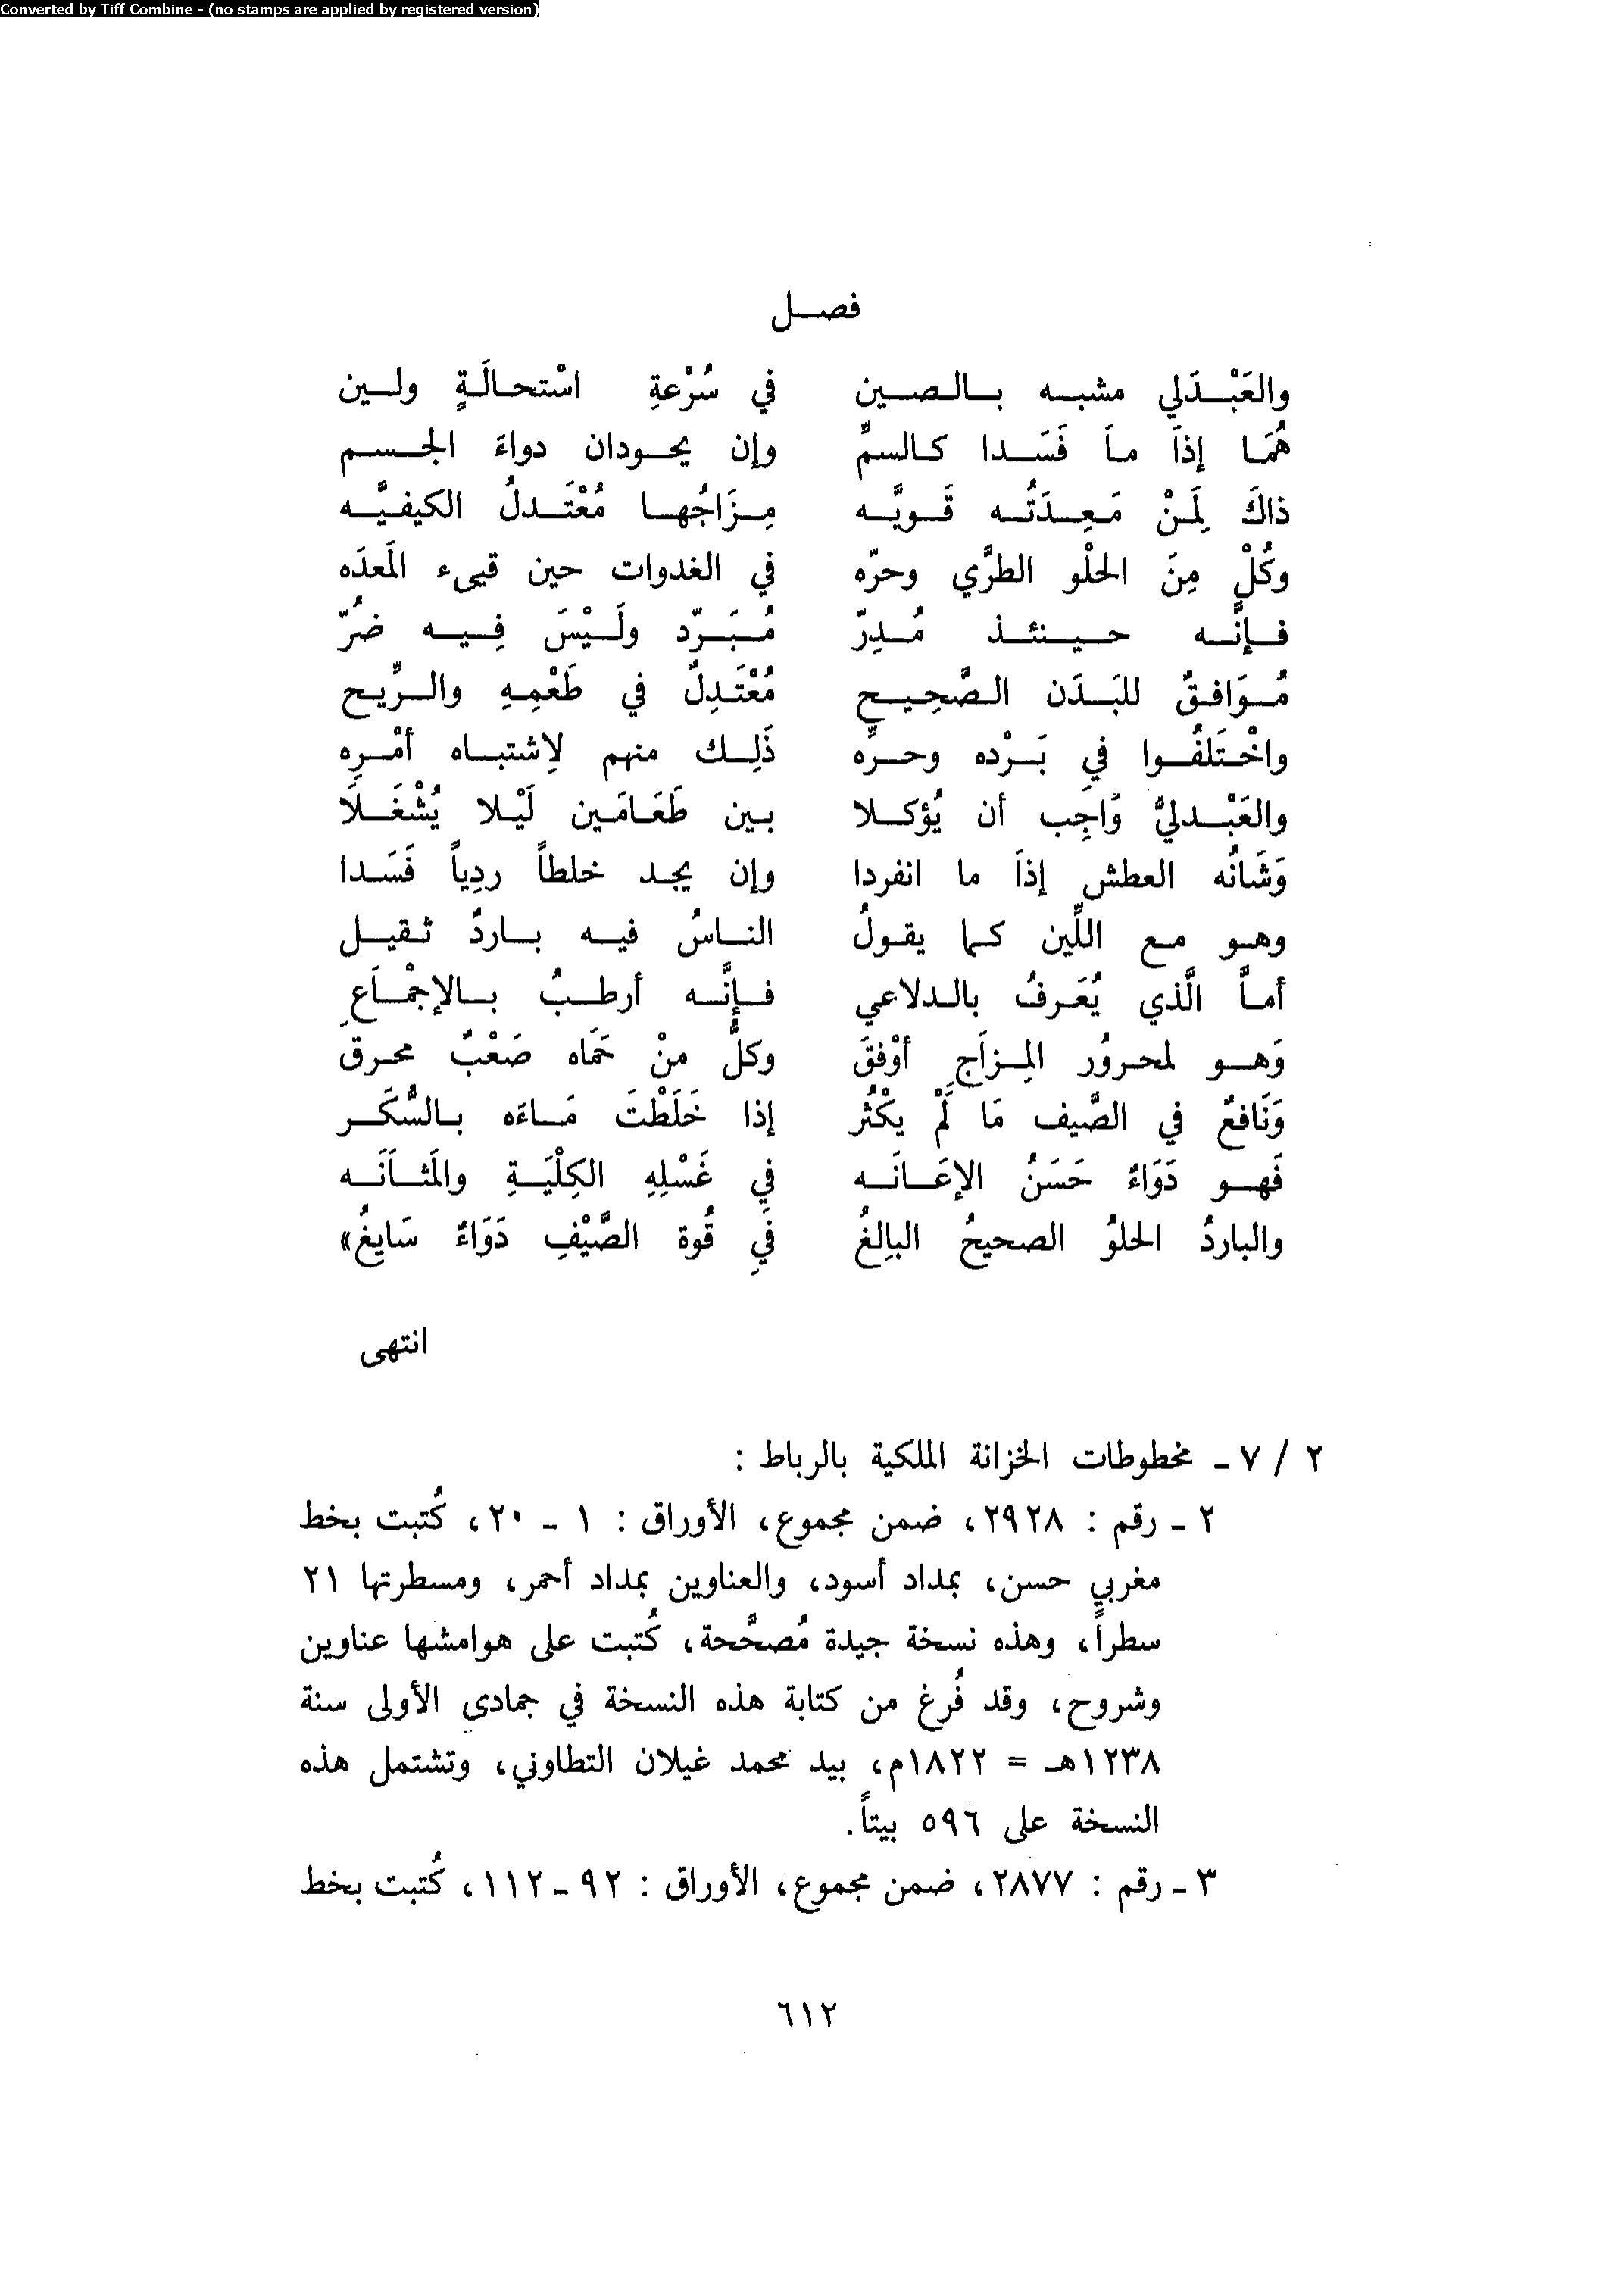 Converted by Tiff Combine - (no stamps are applied by registered version)
فصل
والعَبْدَلي مشبه بالصين في سُرْعةِ اسْتحالَةٍ ولين
هُمَا إذاَ ماَ فَسَدا كالسمِّ وإن يحودان دواءَ الجسم
ذاكَ لِمَنْ مَعِدَتُه قَويَّه مِزَاجُها مُعْتَدلُ الكيفيَّه
وكُلْ مِنَ الحلْو الطرَّي وحرّه في الغدوات حين قيىء المَعدَه
فإنَّه حينئذٍ مُدِرّ مُبَرّد ولَيْسَ فِيه ضرُّ
مُوَافقٌ للبَدَن الصَّحِيحِ مُعْتَدِلٌ في طَعْمِهِ والرِّيح
واخْتَلفُوا في بَرْده وحرَّه ذَلِك منهم لاِشتباه أمْرِه
والعَبْدليُّ وَاجِب أن يُؤكلا بين طَعَامَين لَيْلا يُشْغَلاَ
وَشَانُه العطش إذاَ ما انفردا وإن يجد خلطاً ردِياً فَسَدا
وهو مع اللِّين كما يقولُ الناسُ فيه باردٌ ثقيل
أماَّ الَّذي يُعَرفُ بالدلاعي فإنَّه أرطبُ بالإجْمَاَعِ
وَهو لمحروُر المِزاَجِ أوْفقَ وكلُّ منْ حَمَاه صَعْبٌ محرق
وَنَافعٌ في الصَّيف مَا لَمْ يكْثُر إذا خَلَطْتَ مَاءَه بالسُّكَر
فَهو دَوَاءٌ حَسَنُ الإعَانَه في غَسْلِهِ الكِلْيَةِ والمَثاَنَه
والباردُ الحلوُ الصحيحُ البالِغُ في قُوة الصَّيْفِ دَوَاءٌ سَايغُ»
انتهى
٢ / ٧ ـ مخطوطات الخزانة الملكية بالرباط :
٢ ـ رقم : ٢٩٢٨، ضمن مجموع، الأوراق : ١ ـ ٢٠، كُتبت بخط
مغربي حسن، بمداد أسود، والعناوين بمداد أحمر، ومسطرتها ٢١
سطراً، وهذه نسخة جيدة مُصحَّحة، كُتبت على هوامشها عناوين
وشروح، وقد فُرغ من كتابة هذه النسخة في جمادى الأولى سنة
١٢٣٨هـ = ١٨٢٢م، بيد محمد غيلان التطاوني، وتشتمل هذه
النسخة على ٥٩٦ بيتاً.
٣ ـ رقم : ٢٨٧٧، ضمن مجموع، الأوراق : ٩٢ ـ ١١٢، كُتبت بخط
٦١٢